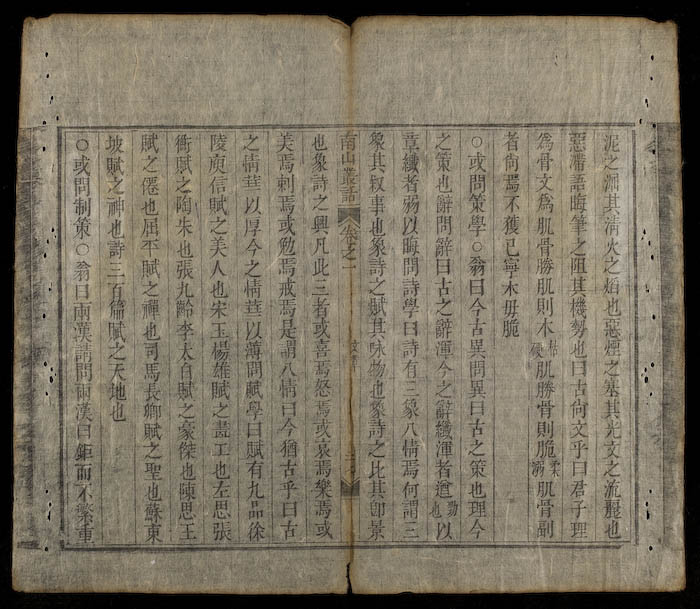 泥之溷其清火之熖也惡煙之塞其光文之流麗也
惡滯語晦筆之阻其機勢也曰古尙文乎曰君子理
爲骨文爲肌骨勝肌則木枯硬肌勝骨則脆柔溺肌骨副
者尙焉不獲已寧木毋脆
○或問策學○翁曰今古異問異曰古之策也理今
之策也辭問辭曰古之辭渾今之辭纖渾者遒勁也以
章纖者弱以晦問詩學曰詩有三象八情焉何謂三
象其叙事也象詩之賦其味物也象詩之比其卽景
南山叢話 卷之一
也象詩之興凡此三者或喜焉怒焉或哀焉樂焉或
美焉刺焉或勉焉戒焉是謂八情曰今猶古乎曰古
之情葊以厚今之情葊以薄問賦學曰賦有九品徐
陵庾信賦之美人也宋玉楊雄賦之畫工也左思張
衡賦之陶朱也張九齡李太白賦之豪傑也陳思王
賦之僊也屈平賦之禪也司馬長卿賦之聖也蘇東
坡賦之神也詩三百篇賦之天地也
○或問制策○翁曰兩漢請問兩漢曰鉅而不繁重